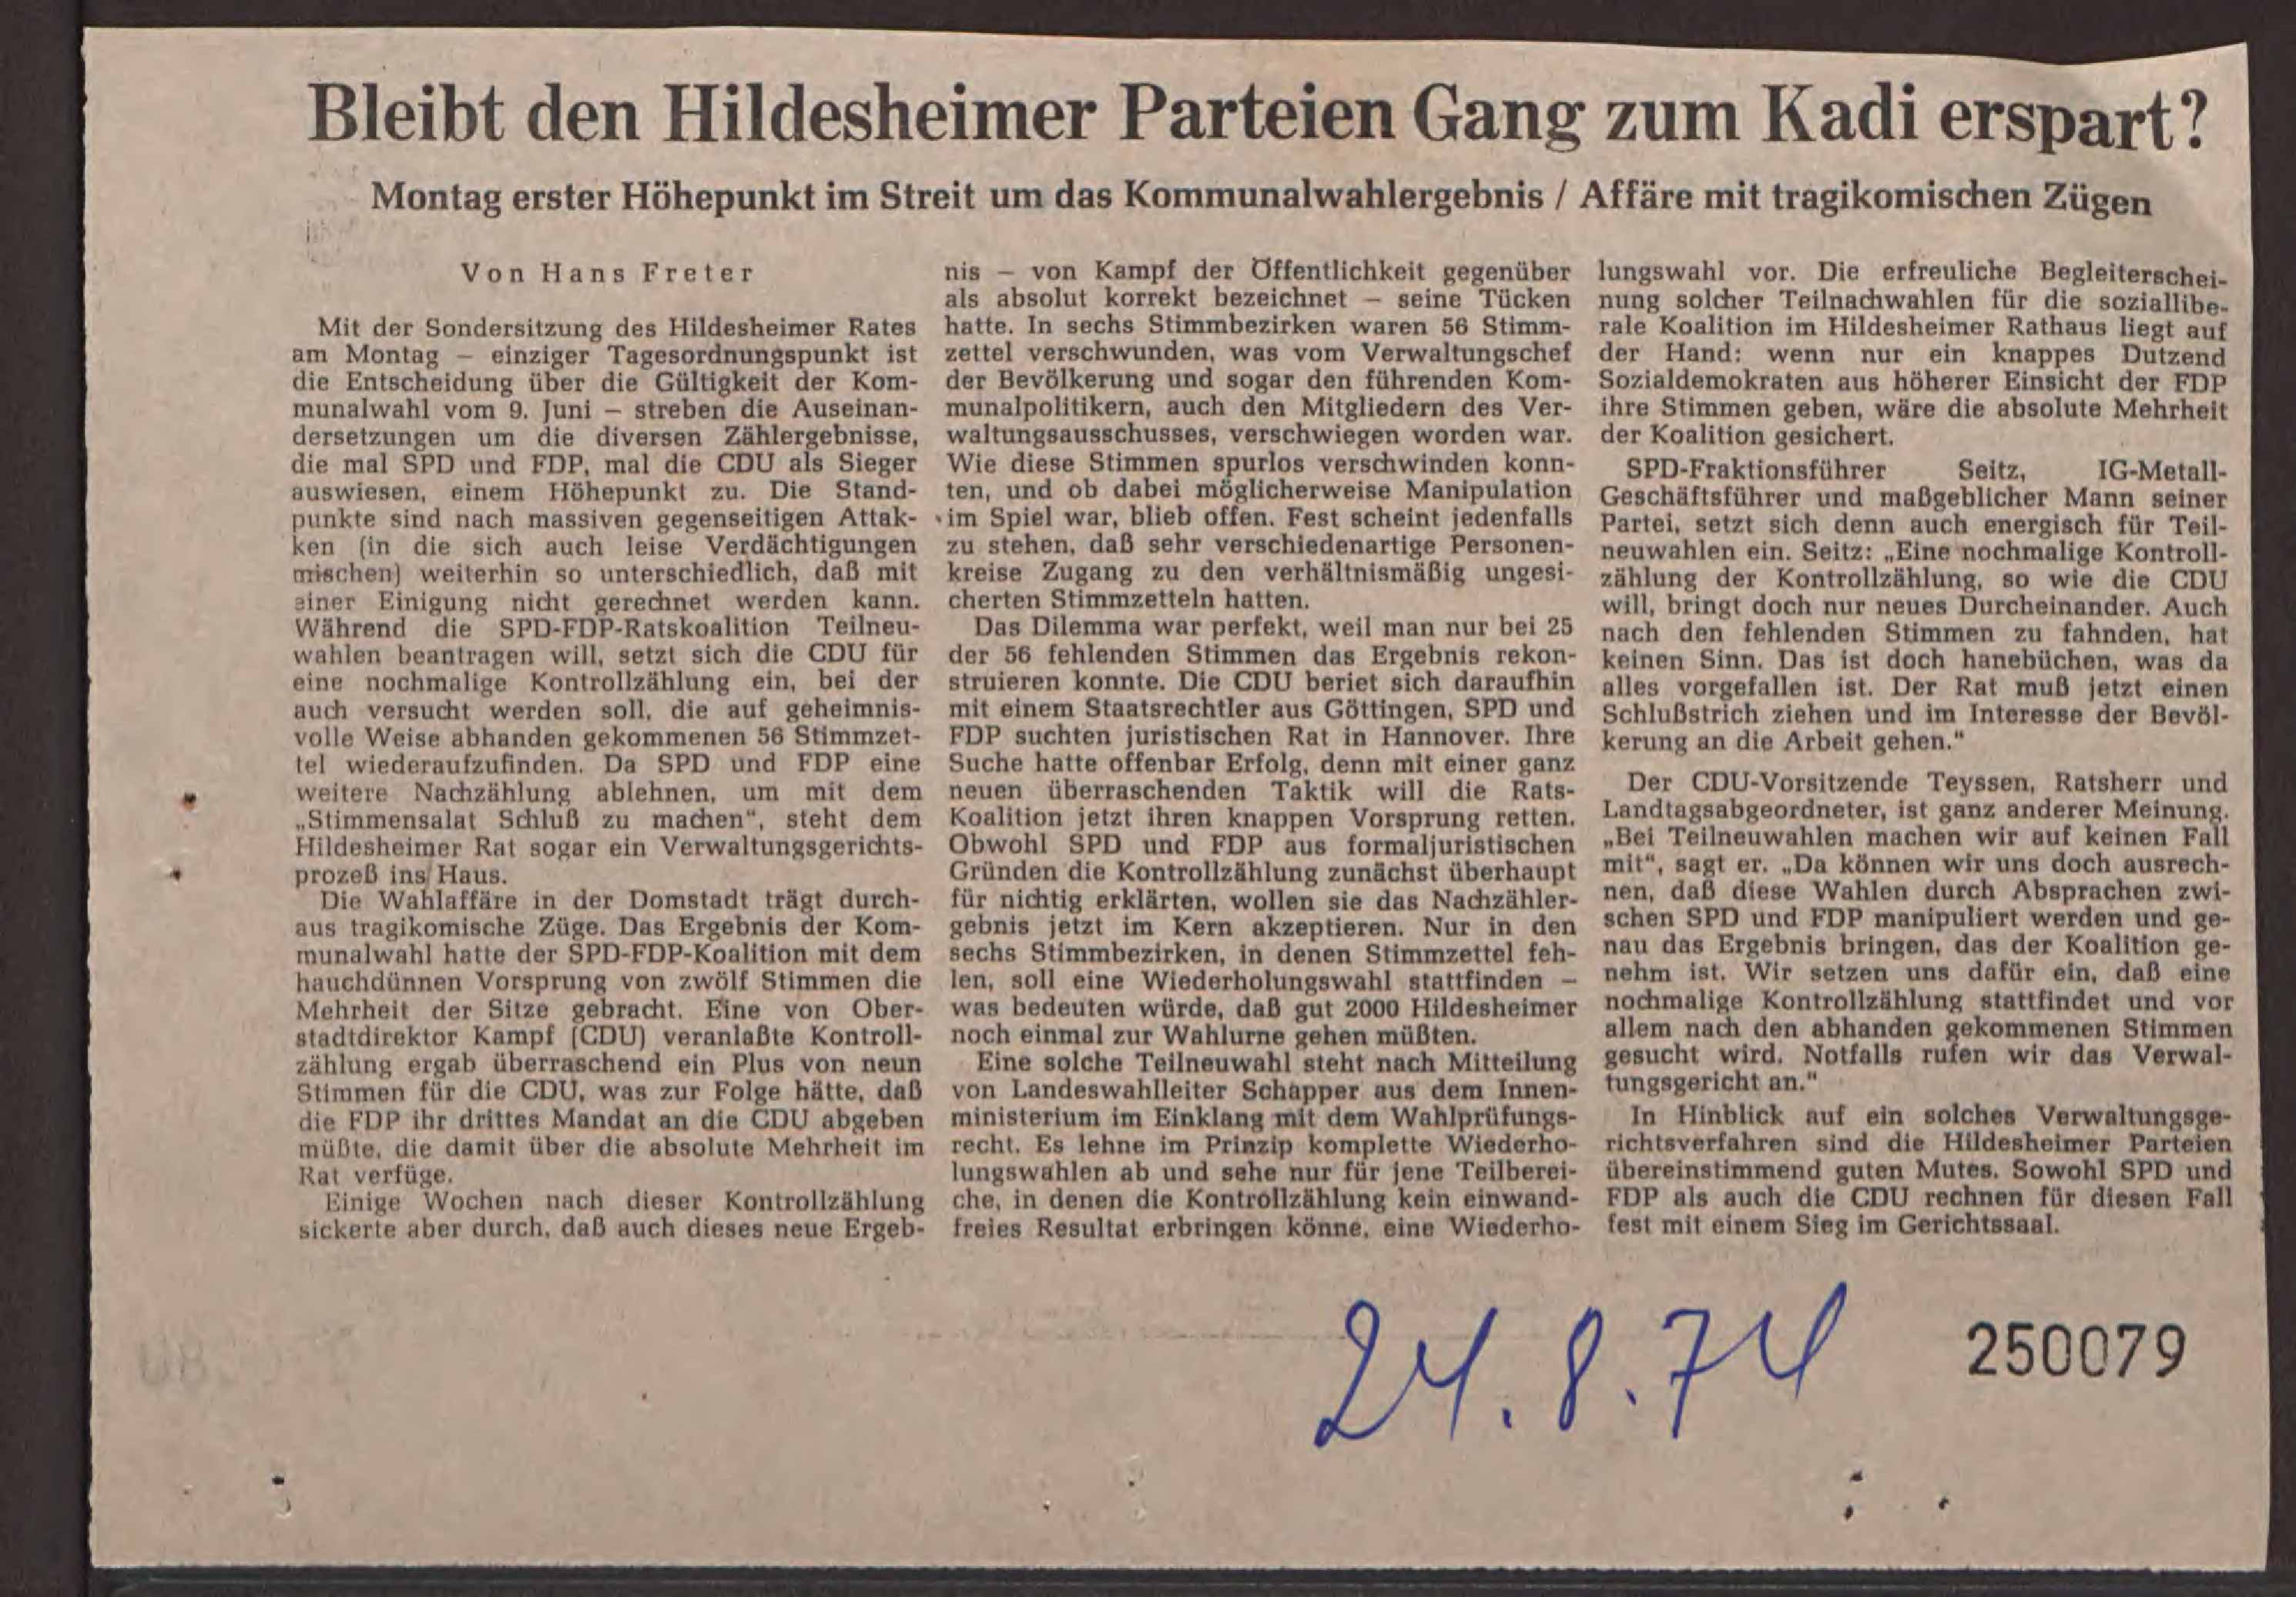 Bleibt den Hildesheimer Parteien Gang zum Kadi erspart?
Montag erster Höhepunkt im Streit um das Kommunalwahlergebnis / Affäre mit tragikomischen Zügen
Von Hans Freter
Mit der Sondersitzung des Hildesheimer Rates
am Montag – einziger Tagesordnungspunkt ist
die Entscheidung über die Gültigkeit der Kom-
munalwahl vom 9. Juni – streben die Auseinan-
dersetzungen um die diversen Zählergebnisse,
die mal SPD und FDP, mal die CDU als Sieger
auswiesen, einem Höhepunkt zu. Die Stand-
punkte sind nach massiven gegenseitigen Attak-
ken (in die sich auch leise Verdächtigungen
mischen) weiterhin so unterschiedlich, daß mit
einer Einigung nicht gerechnet werden kann.
Während die SPD-FDP-Ratskoalition Teilneu-
wahlen beantragen will, setzt sich die CDU für
eine nochmalige Kontrollzählung ein, bei der
auch versucht werden soll, die auf geheimnis-
volle Weise abhanden gekommenen 56 Stimmzet-
tel wiederaufzufinden. Da SPD und FDP eine
weitere Nachzählung ablehnen, um mit dem
„Stimmensalat Schluß zu machen“, steht dem
Hildesheimer Rat sogar ein Verwaltungsgerichts-
prozeß ins Haus.
Die Wahlaffäre in der Domstadt trägt durch-
aus tragikomische Züge. Das Ergebnis der Kom-
munalwahl hatte der SPD-FDP-Koalition mit dem
hauchdünnen Vorsprung von zwölf Stimmen die
Mehrheit der Sitze gebracht. Eine von Ober-
stadtdirektor Kampf (CDU) veranlaßte Kontroll-
zählung ergab überraschend ein Plus von neun
Stimmen für die CDU, was zur Folge hätte, daß
die FDP ihr drittes Mandat an die CDU abgeben
müßte, die damit über die absolute Mehrheit im
Rat verfüge.
Einige Wochen nach dieser Kontrollzählung
sickerte aber durch, daß auch dieses neue Ergeb-
nis – von Kampf der Öffentlichkeit gegenüber
als absolut korrekt bezeichnet – seine Tücken
hatte. In sechs Stimmbezirken waren 56 Stimm-
zettel verschwunden, was vom Verwaltungschef
der Bevölkerung und sogar den führenden Kom-
munalpolitikern, auch den Mitgliedern des Ver-
waltungsausschusses, verschwiegen worden war.
Wie diese Stimmen spurlos verschwinden konn-
ten, und ob dabei möglicherweise Manipulation
im Spiel war, blieb offen. Fest scheint jedenfalls
zu stehen, daß sehr verschiedenartige Personen-
kreise Zugang zu den verhältnismäßig ungesi-
cherten Stimmzetteln hatten.
Das Dilemma war perfekt, weil man nur bei 25
der 56 fehlenden Stimmen das Ergebnis rekon-
struieren konnte. Die CDU beriet sich daraufhin
mit einem Staatsrechtler aus Göttingen, SPD und
FDP suchten juristischen Rat in Hannover. Ihre
Suche hatte offenbar Erfolg, denn mit einer ganz
neuen überraschenden Taktik will die Rats-
Koalition jetzt ihren knappen Vorsprung retten.
Obwohl SPD und FDP aus formaljuristischen
Gründen die Kontrollzählung zunächst überhaupt
für nichtig erklärten, wollen sie das Nachzähler-
gebnis jetzt im Kern akzeptieren. Nur in den
sechs Stimmbezirken, in denen Stimmzettel feh-
len, soll eine Wiederholungswahl stattfinden –
was bedeuten würde, daß gut 2000 Hildesheimer
noch einmal zur Wahlurne gehen müßten.
Eine solche Teilneuwahl steht nach Mitteilung
von Landeswahlleiter Schapper aus dem Innen-
ministerium im Einklang mit dem Wahlprüfungs-
recht. Es lehne im Prinzip komplette Wiederho-
lungswahlen ab und sehe nur für jene Teilberei-
che, in denen die Kontrollzählung kein einwand-
freies Resultat erbringen könne, eine Wiederho-
lungswahl vor. Die erfreuliche Begleiterschei-
nung solcher Teilnachwahlen für die soziallibe-
rale Koalition im Hildesheimer Rathaus liegt auf
der Hand: wenn nur ein knappes Dutzend
Sozialdemokraten aus höherer Einsicht der FDP
ihre Stimmen geben, wäre die absolute Mehrheit
der Koalition gesichert.
SPD-Fraktionsführer Seitz, IG-Metall-
Geschäftsführer und maßgeblicher Mann seiner
Partei, setzt sich denn auch energisch für Teil-
neuwahlen ein. Seitz: „Eine nochmalige Kontroll-
zählung der Kontrollzählung, so wie die CDU
will, bringt doch nur neues Durcheinander. Auch
nach den fehlenden Stimmen zu fahnden, hat
keinen Sinn. Das ist doch hanebüchen, was da
alles vorgefallen ist. Der Rat muß jetzt einen
Schlußstrich ziehen und im Interesse der Bevöl-
kerung an die Arbeit gehen."
Der CDU-Vorsitzende Teyssen, Ratsherr und
Landtagsabgeordneter, ist ganz anderer Meinung.
„Bei Teilneuwahlen machen wir auf keinen Fall
mit“, sagt er. „Da können wir uns doch ausrech-
nen, daß diese Wahlen durch Absprachen zwi-
schen SPD und FDP manipuliert werden und ge-
nau das Ergebnis bringen, das der Koalition ge-
nehm ist. Wir setzen uns dafür ein, daß eine
nochmalige Kontrollzählung stattfindet und vor
allem nach den abhanden gekommenen Stimmen
gesucht wird. Notfalls rufen wir das Verwal-
tungsgericht an."
In Hinblick auf ein solches Verwaltungsge-
richtsverfahren sind die Hildesheimer Parteien
übereinstimmend guten Mutes. Sowohl SPD und
FDP als auch die CDU rechnen für diesen Fall
fest mit einem Sieg im Gerichtssaal.
24.8.74
250079